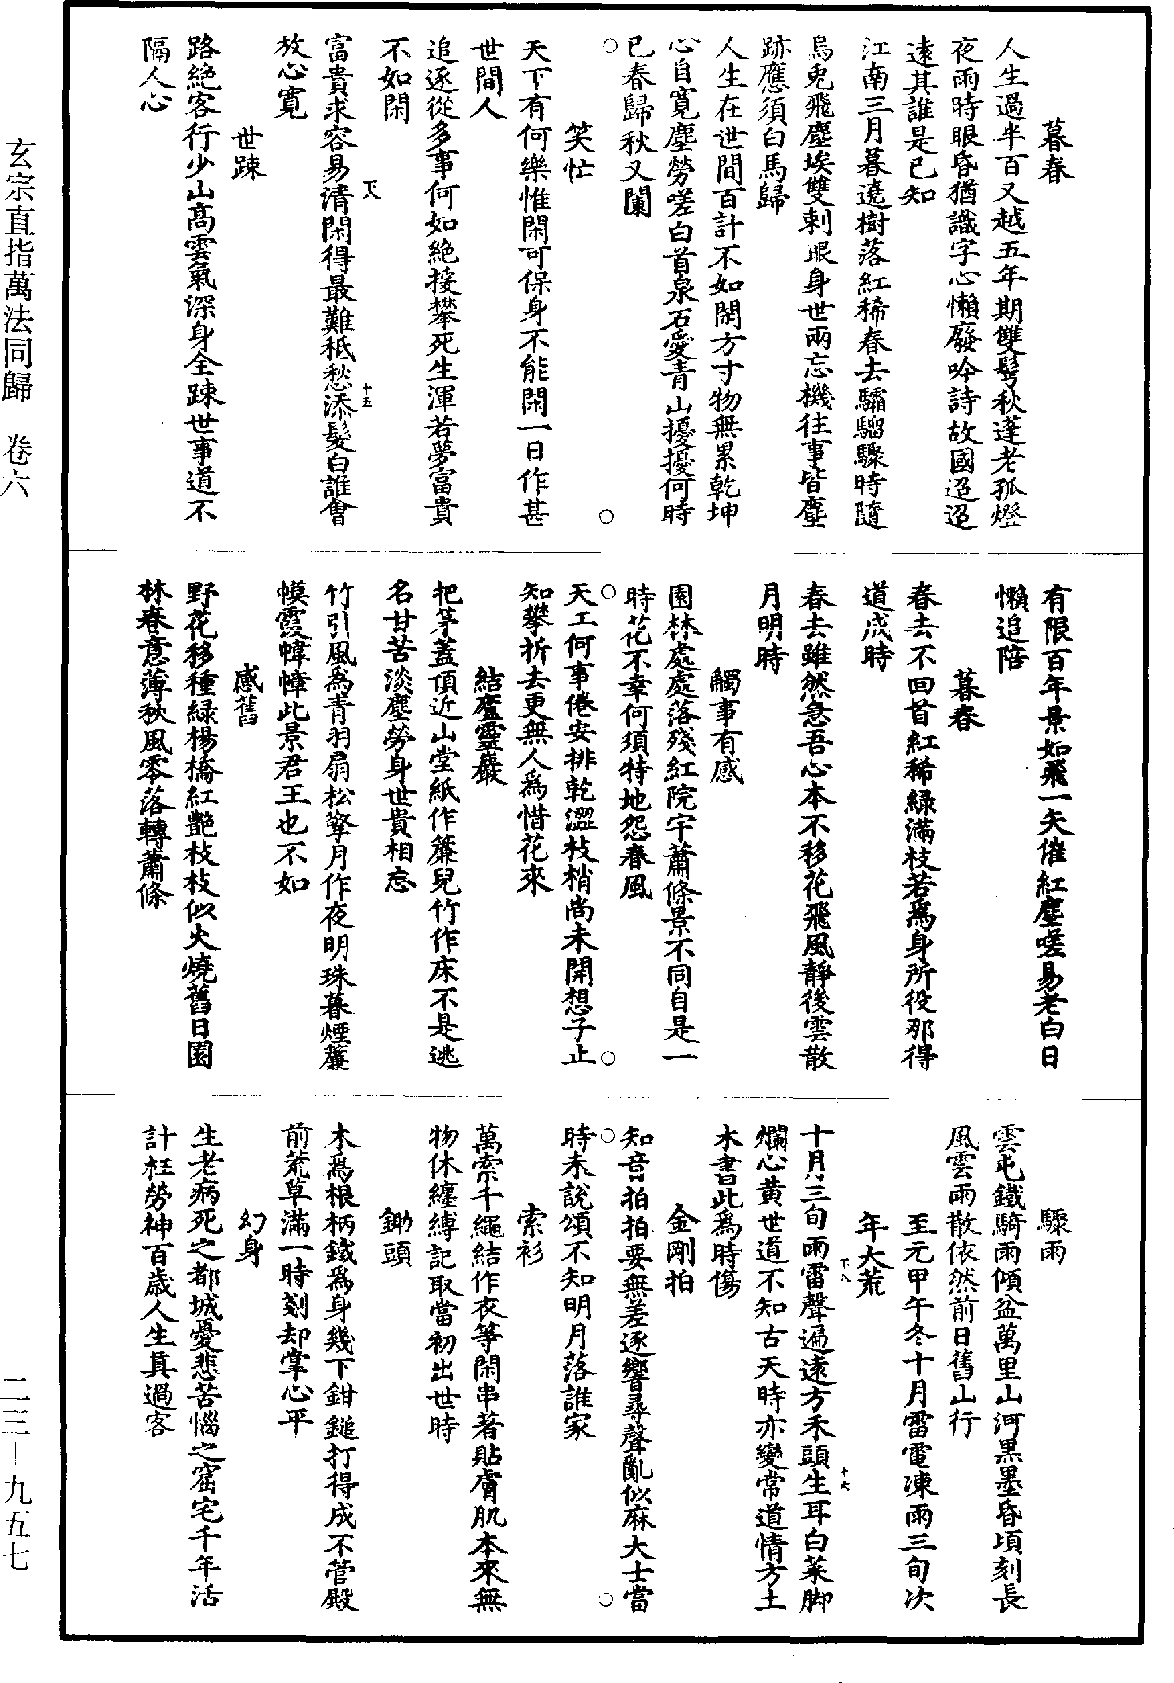 暮春
人生過半百又越五年期雙髩秋蓬老孤燈
夜雨時眼昏猶識字心懶廢吟詩故國迢迢
遠其誰是已知
江南三月暮遶樹落紅稀春去驌騮驟時隨
烏兎飛塵埃雙刺眼身世兩忘機往事皆塵
跡應須白馬歸
人生在世間百計不如閑方寸物無累乾坤
心自寬塵勞嗟白首泉石愛青山擾擾何時
已春歸秋又闌
笑忙
天下有何樂惟閑可保身不能閑一日作甚
世間人
追逐從多事何如絶接攀死生渾若夢富貴
不如閑
富貴求容易清閑得最難秖愁添髮白誰會
放心寬
世踈
路絶客行少山髙雲氣深身全踈世事道不
隔人心
有限百年景如飛一矢催紅塵嗟易老白日
懶追陪
暮春
春去不回首紅稀緑滿枝若爲身所役那得
道成時
春去雖然急吾心本不移花飛風靜後雲散
月明時
觸事有感
園林處處落殘紅院宇蕭條景不同自是一
時花不幸何須特地怨春風
天工何事倦安排乾澀枝梢尚未開想子止
知攀折去更無人爲惜花來
結廬靈巖
把茅蓋頂近山堂紙作簾兒竹作床不是逃
名甘苦淡塵勞身世貴相忘
竹引風爲青羽扇松擎月作夜明珠暮煙簾
幙霞幃幛此景君王也不如
感舊
野花移種緑楊橋紅艶枝枝似火燒舊日園
林春意薄秋風零落轉蕭條
驟雨
雲屯鐵騎雨傾盆萬里山河黒墨昏頃刻長
風雲雨散依然前日舊山行
至元甲午冬十月雷電凍雨三旬次
年大荒
十月三旬雨雷聲遍遠方禾頭生耳白菜脚
爛心黄世道不知古天時亦變常道情方土
木書此爲時傷
金剛拍
知音拍拍要無差逐響尋聲亂似麻大士當
時未說頌不知明月落誰家
索衫
萬索千繩結作衣等閑串著貼膚肌本來無
物休纏縛記取當初出世時
鋤頭
木爲根柄鐵爲身幾下鉗鎚打得成不管殿
前荒草滿一時剗却掌心平
幻身
生老病死之都城憂悲苦惱之窟宅千年活
計枉勞神百歳人生眞過客
玄宗直指萬法同歸 卷六
二三—九五七